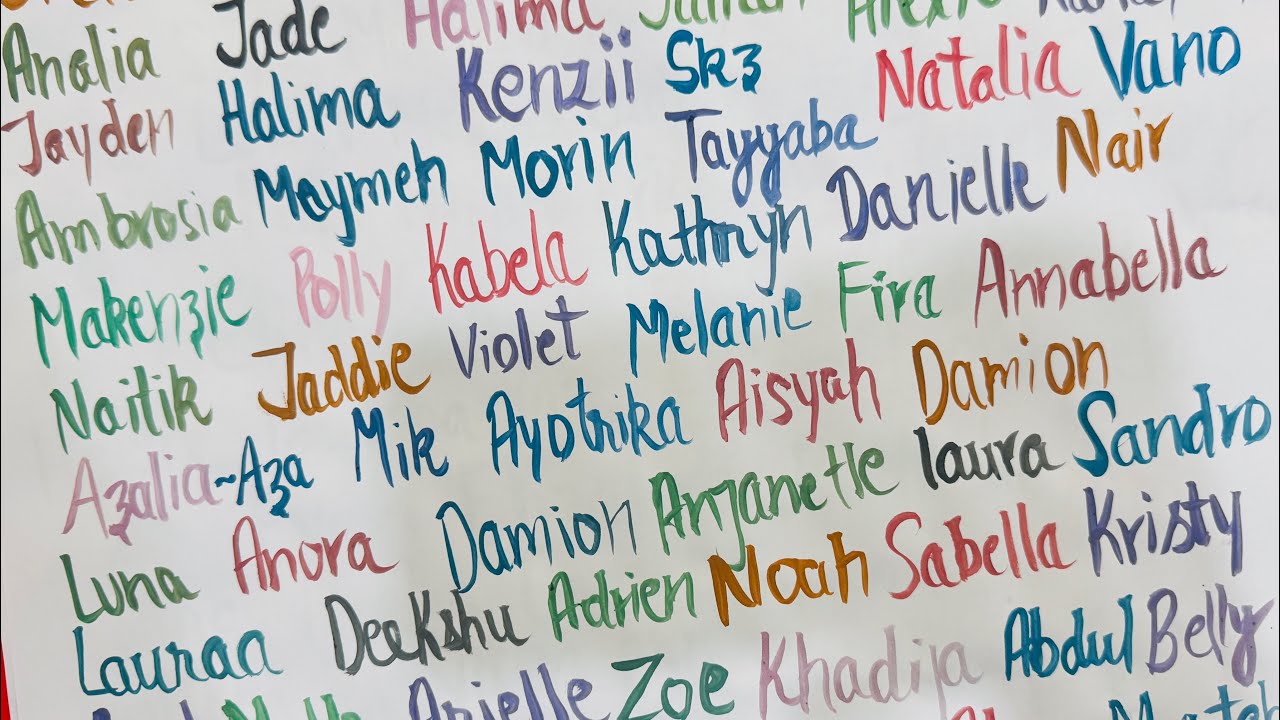 Analia Jade Halima
Jayden Halima Kenzii Skz Natalia Vano
Ambrosia Maymeh Morin Tayyaba Danielle Nair
Makenzie Polly Kabela Kathryn Fira Annabella
Naitik Jaddie Violet Melanie Damion
Azalia~Aza Mik Ayotrika Aisyah laura Sandro
Luna Anora Damion Anjanette Sabella Kristy
Lauraa Deekshu Adrien Noah Abdul Belly
Arielle Zoe Khadija